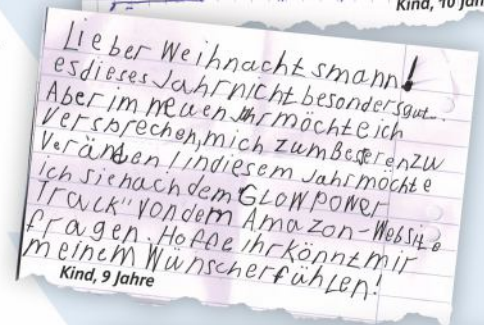 Kind, 10 Jah
Lieber Weihnachtsmann!
es dieses Jahr nicht besonders gut...
Aber im neuen Jahr möchte ich
Versprechen, mich zum Besseren zu
Verändern! in diesem Jahr möchte
ich sie nach dem "GLOW POWER
Track" von dem Amazon-Website
fragen. Hoffe ihr könnt mir
meinem Wunsch erfühlen!
Kind, 9 Jahre